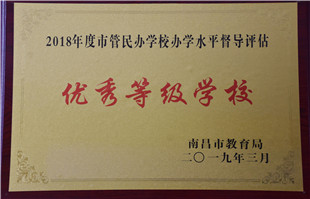 2018年度市管民办学校办学水平督导评估
优秀等级学校
南昌市教育局
二〇一九年三月